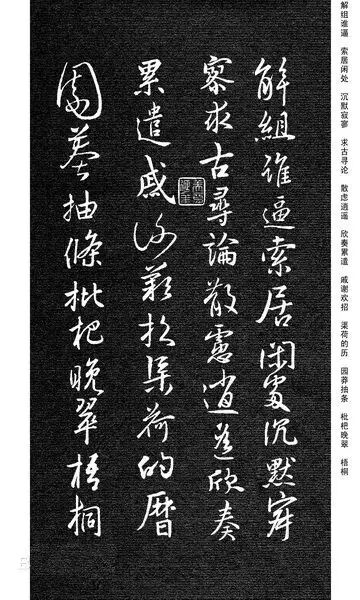 解组谁逼 索居闲处 沉默寂寥 求古寻论 散虑逍遥 欣奏累遣 戚谢欢招 渠荷的历 园莽抽条 枇杷晚翠 梧桐
解組誰逼索居閑處沉默寂
寥求古尋論散慮逍遥欣奏
累遣戚謝歡招渠荷的曆
園莽抽條枇杷晚翠梧桐